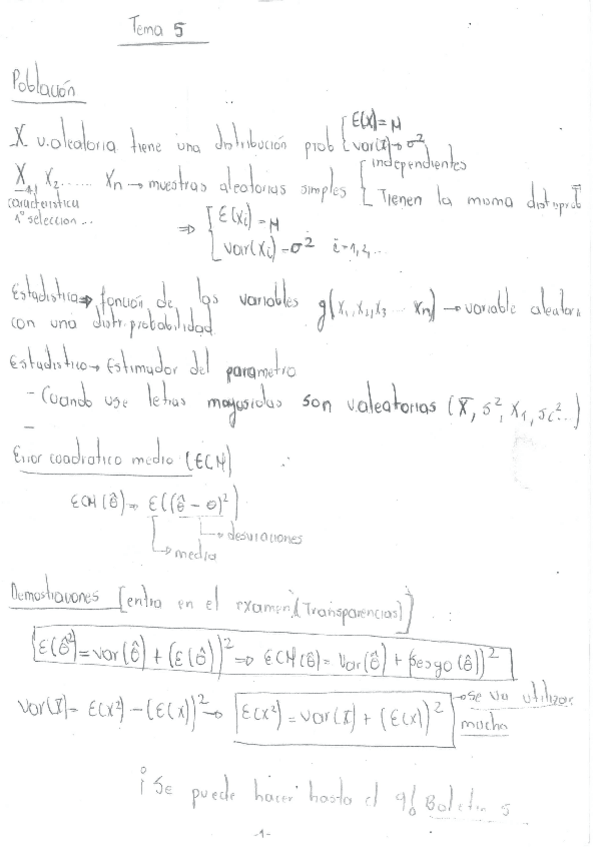 Tema 5
Población
X v.aleatoria tiene una distribución prob { E(X)= M
var(X) → σ²
X₁, X₂...... Xn → muestras aleatorias simples [ independientes
Tienen la misma distrprob
característica
1º selección...
⇒ [ E(Xi) = M
var(Xi) = σ² i=1,2,...
Estadístico ⇒ función de las variables g(X₁, X₂, X₃ ... Xn) → variable aleatori
con una distr.probabilidad
Estadístico → Estimador del parametro
- Cuando use letras mayúsculas son v.aleatorias (X̄, S², X₁, Sc²...)
-
Error cuadratico medio (ECM)
ECM(θ̂) = E((θ̂ - θ)²)
↳ desviaciones
↳ media
Demostraciones [entra en el examen (Transparencias)]
E(θ̂²) = var(θ̂) + (E(θ̂))² ⇒ ECM(θ̂) = Var(θ̂) + (Sesgo(θ̂))²
Var(X) = E(X²) - (E(X))² → E(X²) = var(X) + (E(X))²
→ se va utilizar
mucho
¡Se puede hacer hasta el 9! Boletin 5
-1-